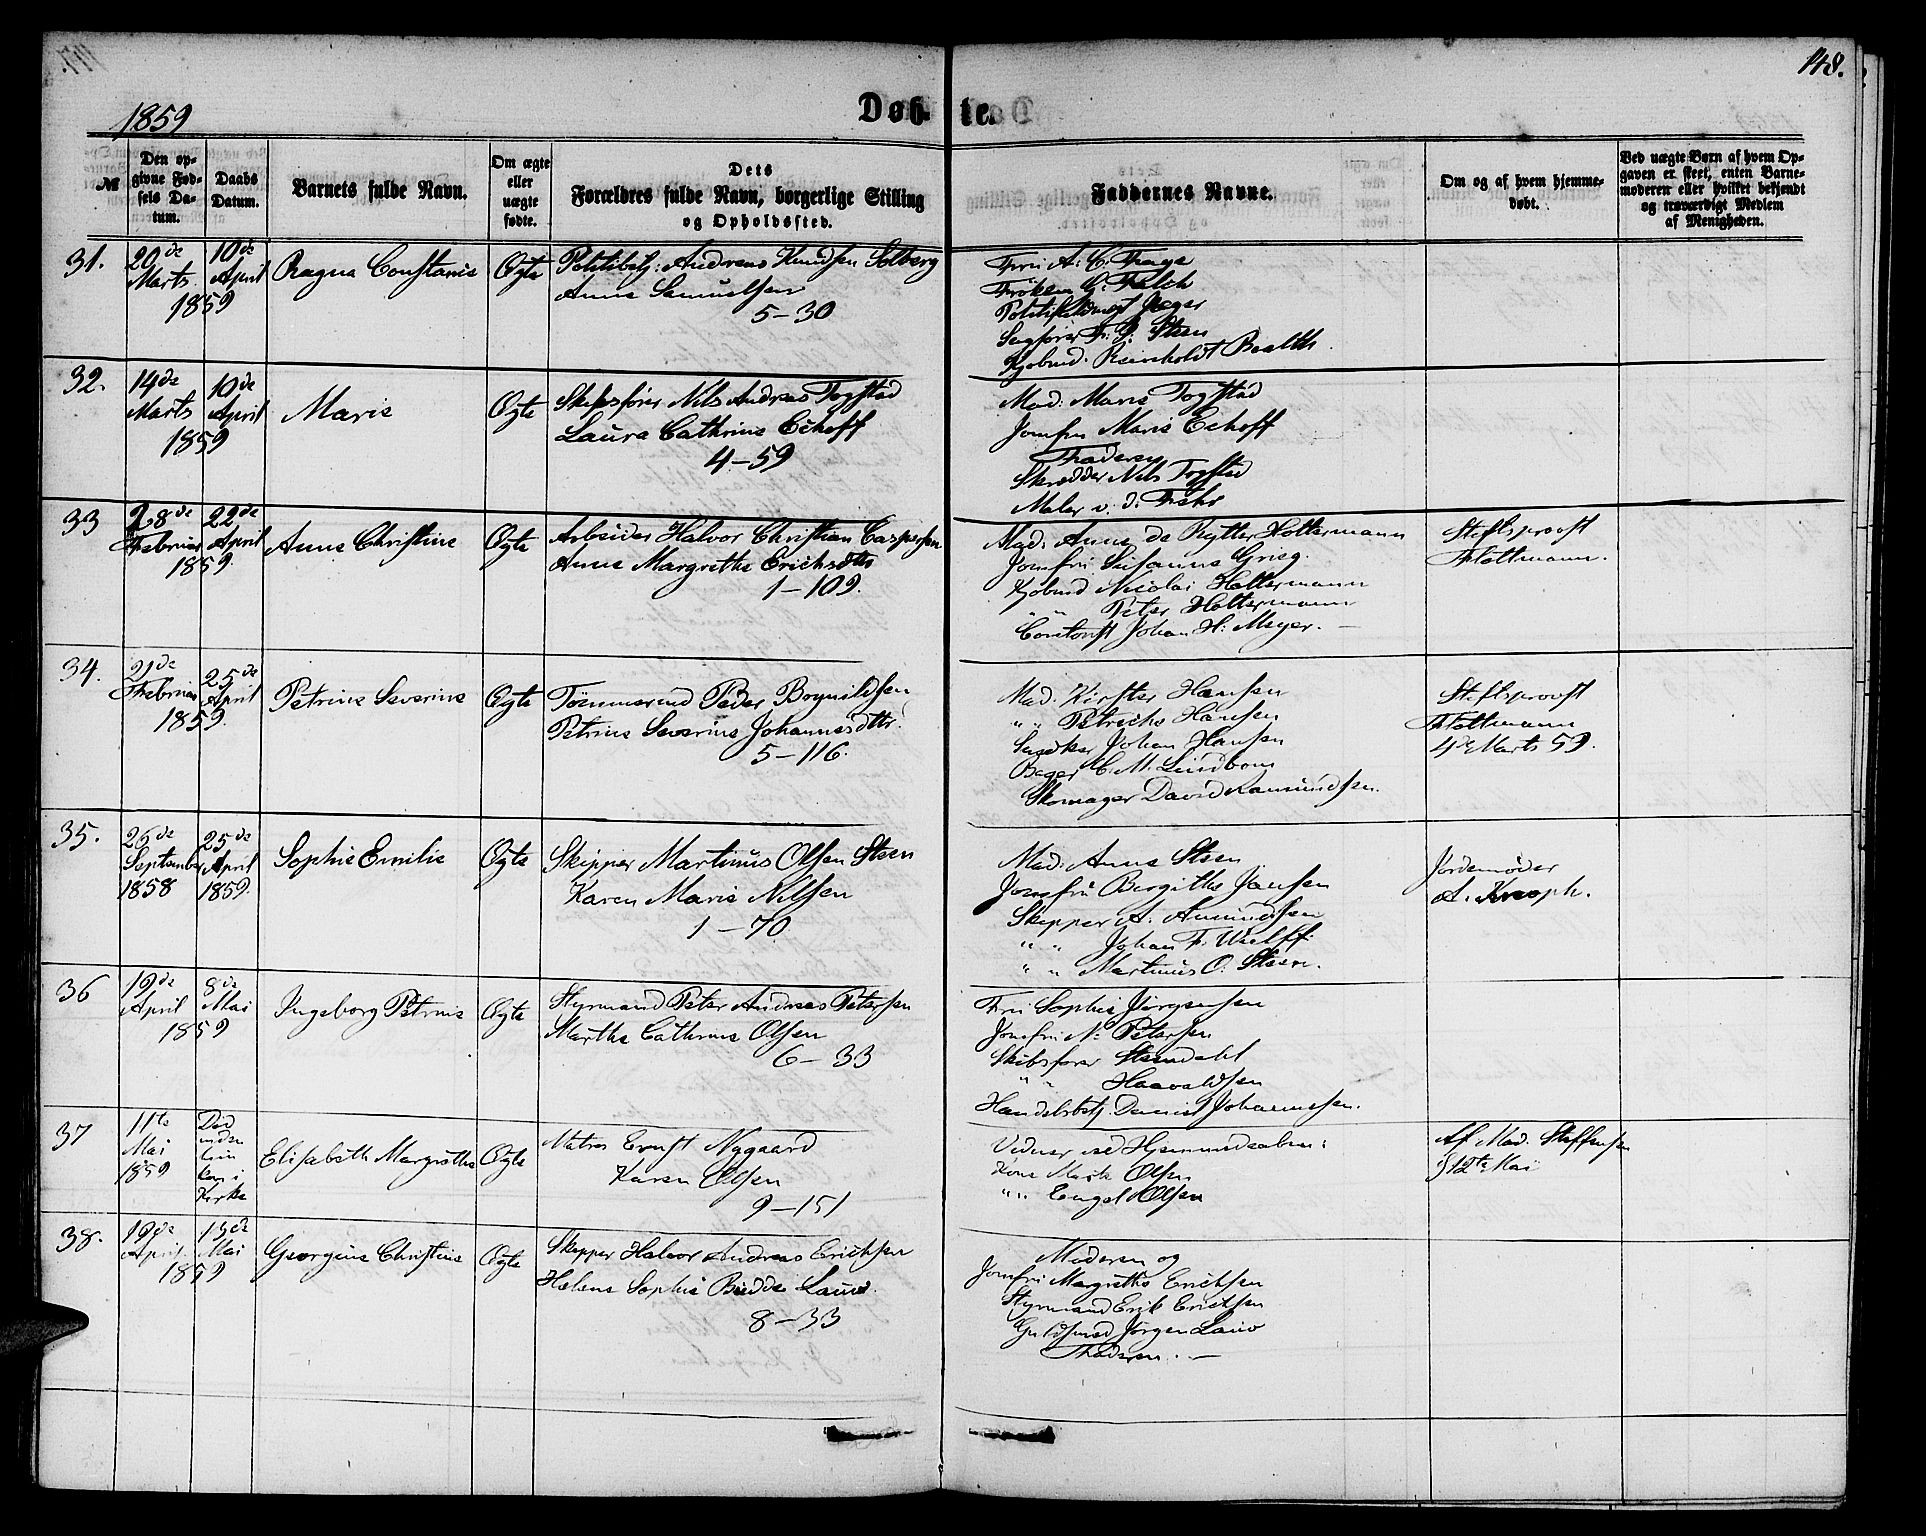 148.
1859
Døbte.
№
Den opgivne Fødsels Datum.
Daabs Datum.
Barnets fulde Navn.
Om ægte eller uægte fødte.
Dets Forældres fulde Navn, borgerlige Stilling og Opholdssted.
Faddernes Navne.
Om og af hvem hjemmedøbt.
Ved uægte Børn af hvem Opgaven er skeet, enten Barnemoderen eller hvilket bekjendt og troværdigt Medlem af Menigheden.
31.
20de Marts 1859
10de April
Ragna Constanse
Ægte
Politibetj: Andreas Knudsen Solberg
Anne Samuelsen
5-30
Fru A. C.
Frøken G. Falch
Politifuldmægt Jæger
Sagfører F. G. Steen
Kjøbmd. Reinholdt
32.
14de Marts 1859
10de April
Marie
Ægte
Skibsfører Nils Andreas Fogstad
Laura Cathrine Eckoff
4-59
Mad. Marie Fogstad
Jomfru Marie Eckoff
Faderen
Skrædder Nils Fogstad
Maler v. d. Fehr
33
28de Februar 1859
22de April
Anne Christine
Ægte
Arbeider Halvor Christian Caspersen
Anne Margrethe Erichsdttr
1-109.
Mad. Anne de Rytter Holtermann
Jomfru Susanne Grieg.
Kjøbmd Nicolai Holtermann
" " Peter Holtermann
Contorist Johan H. Meyer.
Stiftsprovst
Flottmann.
34.
21de Februar 1859.
25de April
Petrine Severine
Ægte
Tømmermd Peder Boynildsen
Petrine Severine Johannesdttr.
5-116.
Mad. Kirsten Hansen
" " Petricke Hansen
Johan Hansen
Bager C. M. Lindbom
Skomager David Ramundsen.
Stiftsprovst
Flottmann
4de Marts 59.
35.
26de September 1858
25de April 1859.
Sophie Emilie
Ægte
Skipper Martinus Olsen Steen
Karen Marie Nilsen
1-70
Mad. Anne Steen
Jomfru Bergithe Jansen
Skipper A. Amundsen
" " Johan F. Wulff.
" " Martinus O. Steen.
Jordemoder
A. Knoph.
36
19de April 1859
8de Mai
Ingeborg Petrine
Ægte
Styrmand Peter Andreas Petersen
Marthe Cathrine Olsen
6-33
Fru Sophie Jørgensen
Jomfru N. Petersen
Skibsfører Steendahl
" " Haavaldsen
Handelsbetj. Daniel Johannesen.
37
11te Mai 1859
Død inden kom i Kirke
Elisabeth Margrethe
Ægte
Matros Ernst Nygaard
Karen Olsen
9-151
Vidner ved Hjemmedaaben:
Kone Marte Olsen
" " Engel Olsen
Af Mad. Steffensen
12te Mai
38.
19de April 1859
13de Mai
Georgine Christine
Ægte
Skipper Halvor Andreas Erichsen
Helene Sophie Budde Lauw.
8-33
Moderen og
Jomfru Margrethe Erichsen
Styrmand Erik Erichsen
Guldsmed Jørgen Lauw
Faderen.